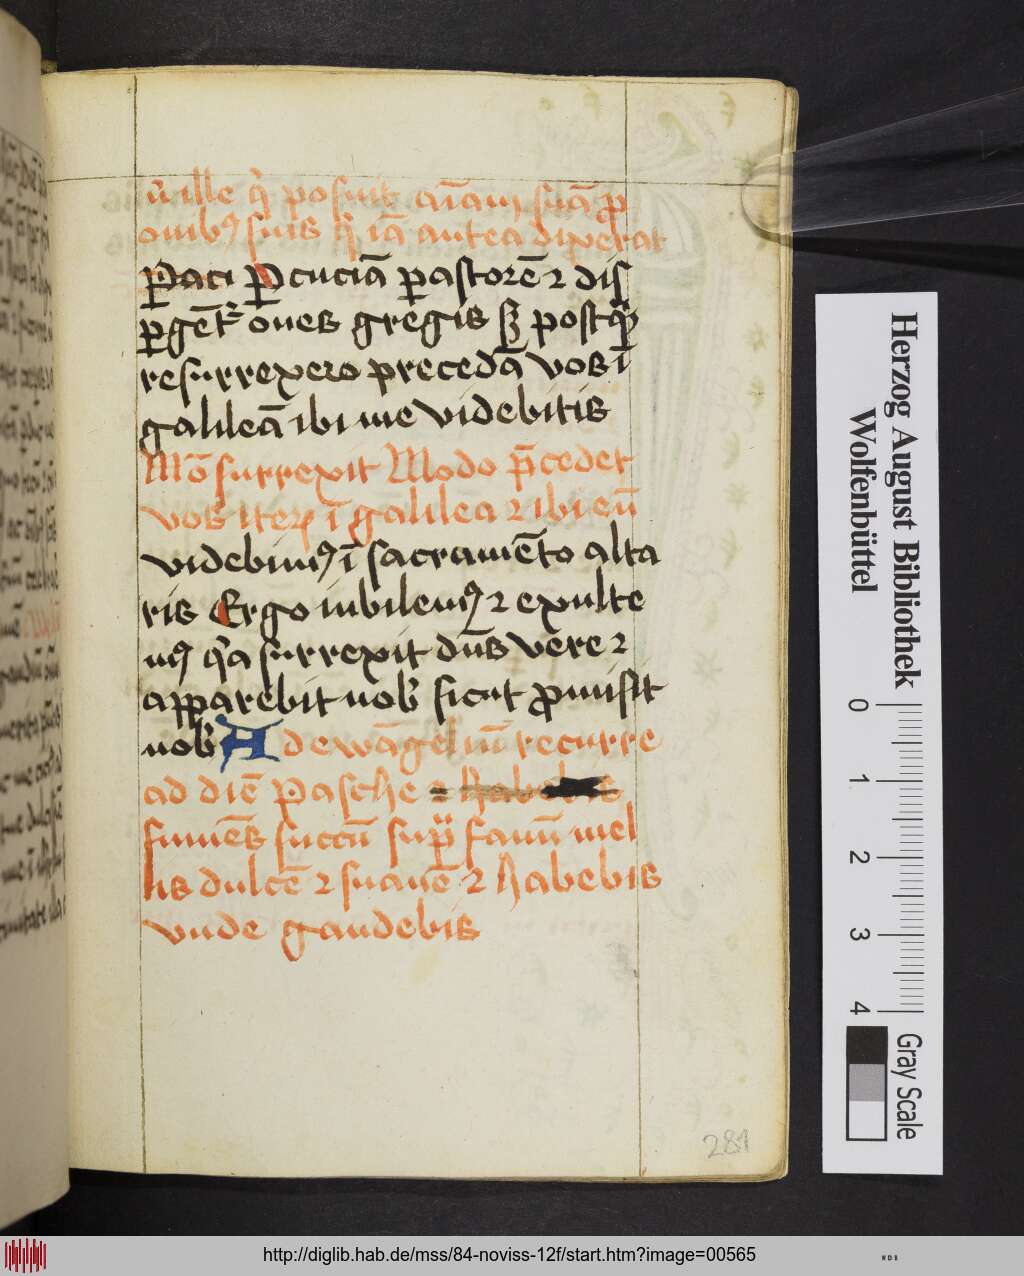 ille q̄ posuit aīam suā ꝓ
ouibꝯ suis q̄ iā antea dixerat
ꝑcuciā pastorē ⁊ dis
ꝑgētʳ oues gregis sꝫ postꝙ̄
resurrexero precedā vos ī
galileā ibi me videbitis
Mō surrexit Modo p̄cedet
vos iteꝝ ī galilea ⁊ ibi eū
videbimꝯ ī sacramēto alta
ris Ergo iubilemꝯ ⁊ exulte
mꝯ q̄a surrexit dn̄s vere ⁊
apparebit nob̄ sicut ꝓmisit
nob̄ Ad ewāgeliū recurre
ad diē Pasche
sumēs succū suꝑ fauū mel
lis dulcē ⁊ suauē ⁊ habebis
vnde gaudebis
281
Herzog August Bibliothek
Wolfenbüttel
0
1
2
3
4
Gray Scale
http://diglib.hab.de/mss/84-noviss-12f/start.htm?image=00565